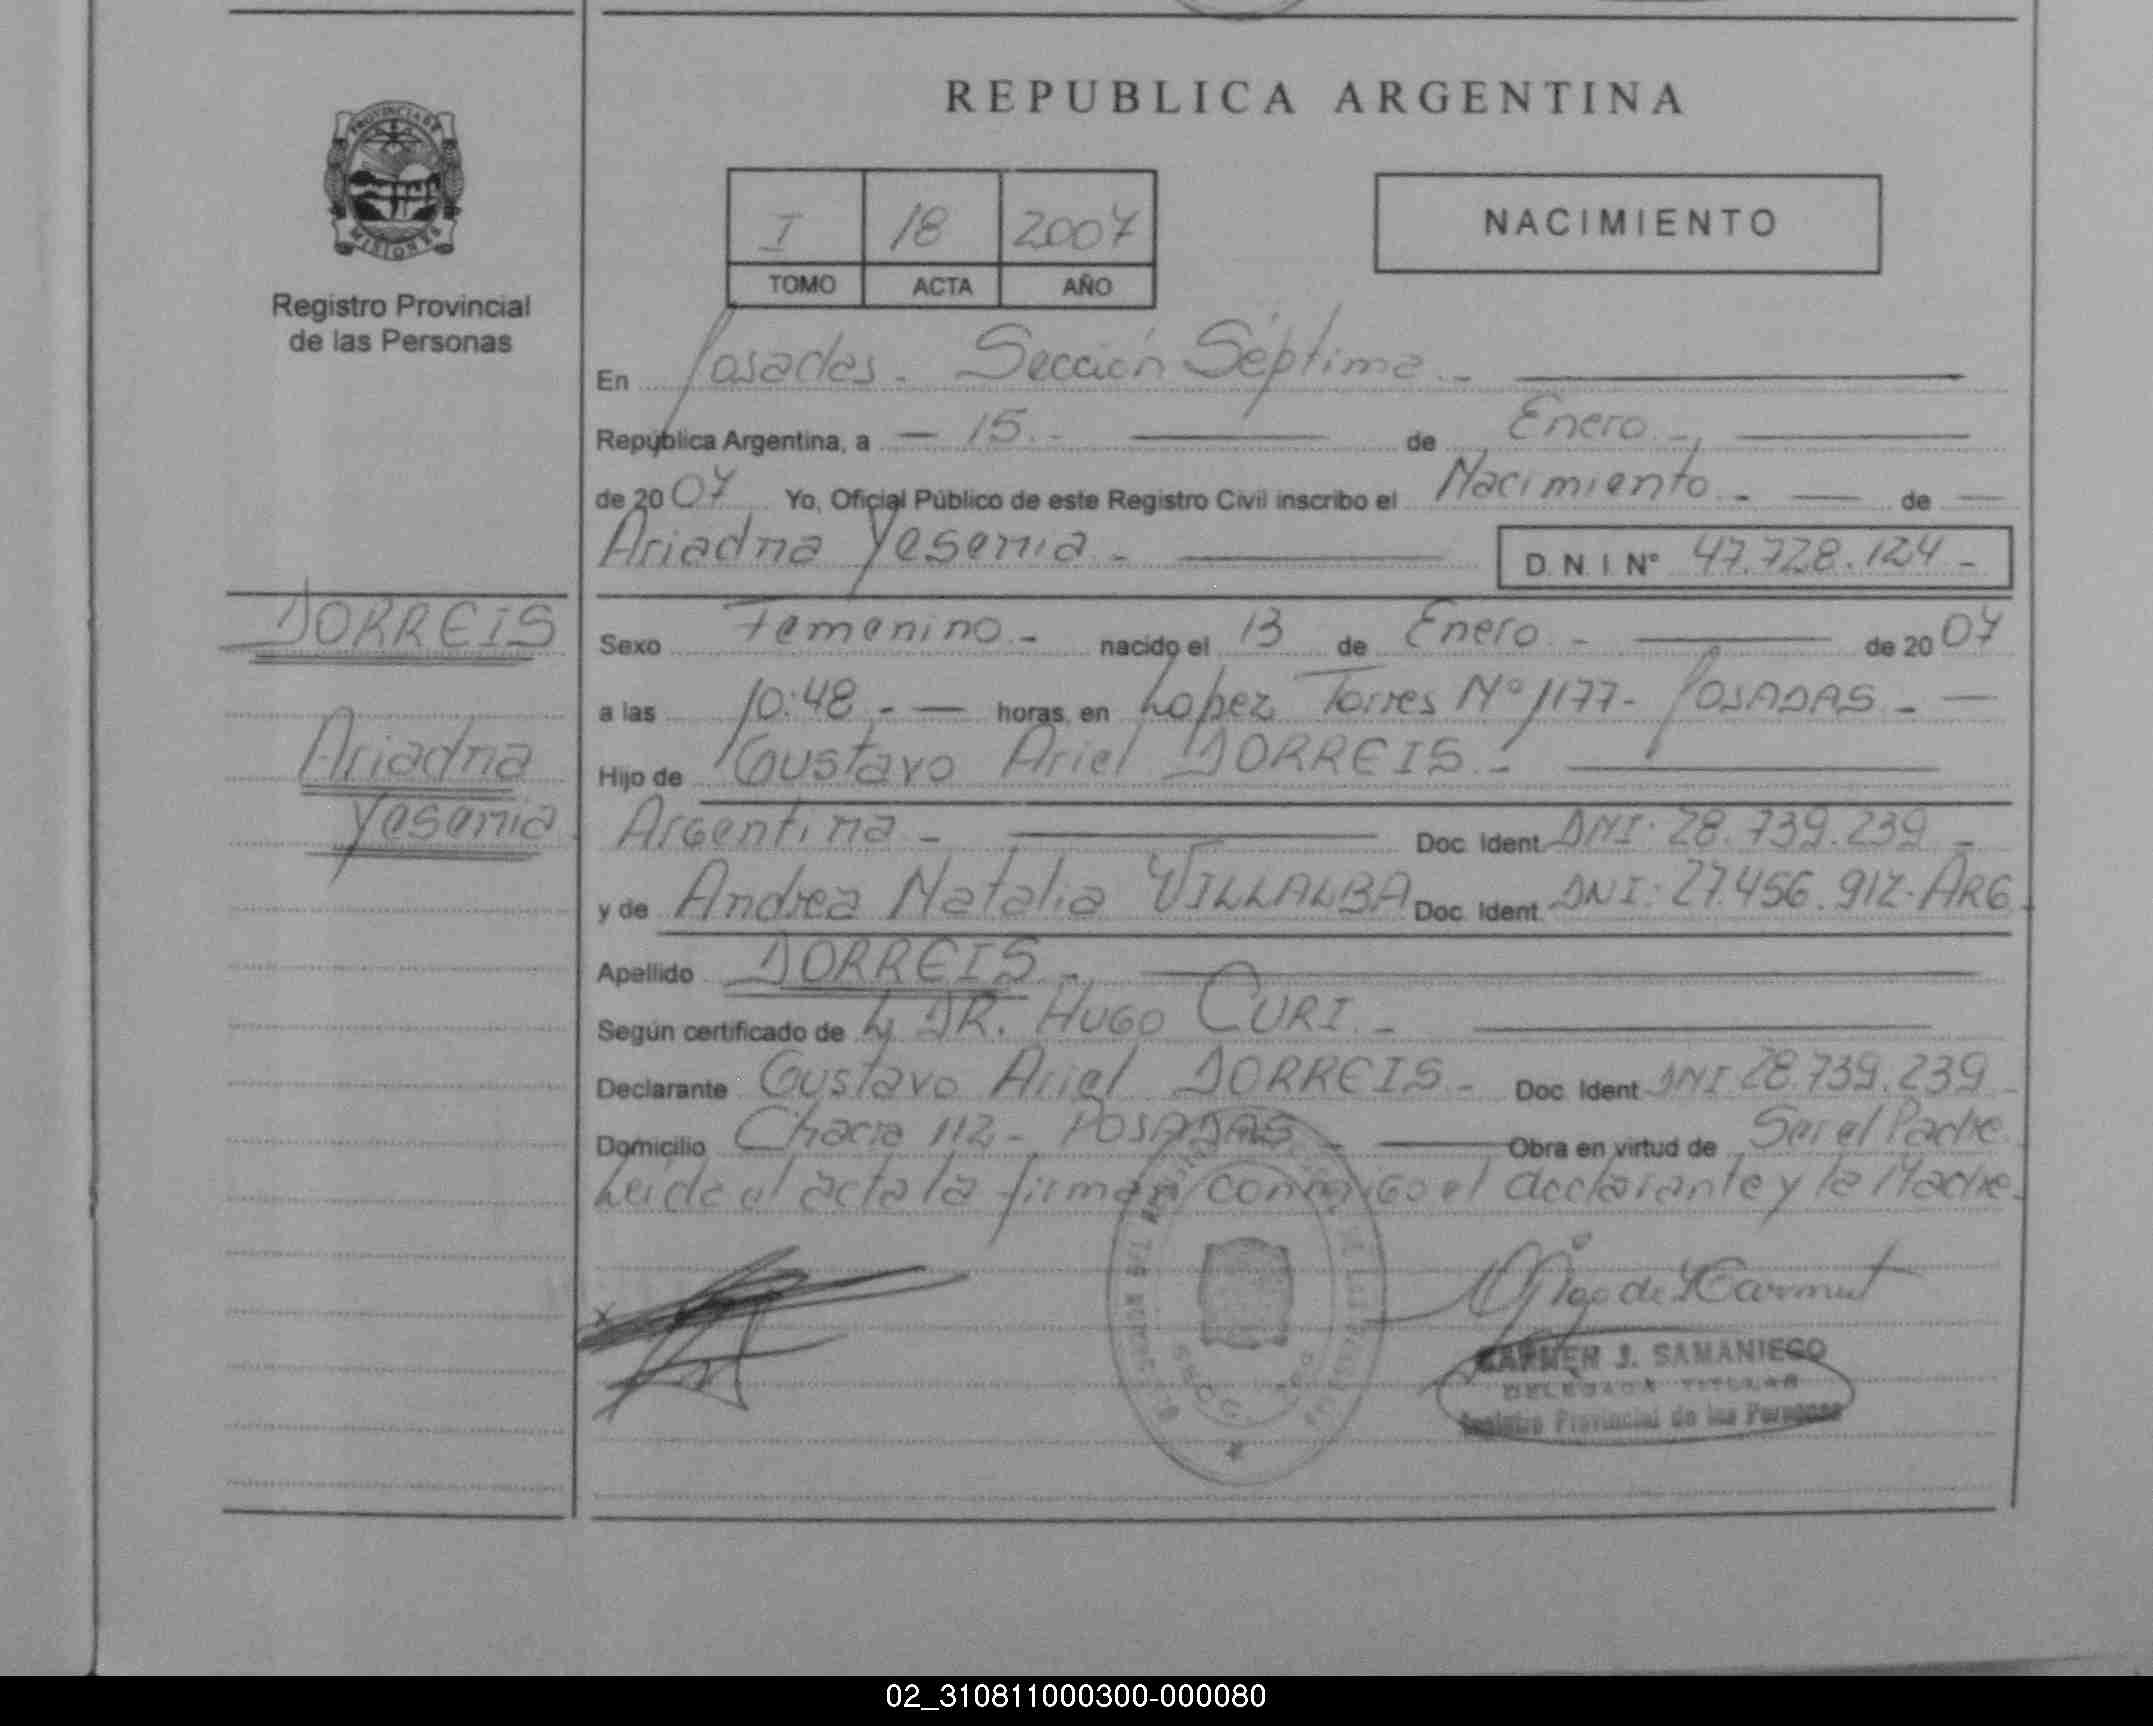 PROVINCIA DE
MISIONES
Registro Provincial
de las Personas
DORREIS
Ariadna
Yesenia
REPUBLICA ARGENTINA
I 18 2007
TOMO ACTA AÑO
NACIMIENTO
En Posadas - Sección Séptima -
República Argentina, a - 15 - de Enero -,
de 2007 Yo, Oficial Público de este Registro Civil inscribo el Nacimiento - de
Ariadna Yesenia - D.N.I Nº 47.728.124 -
Sexo Femenino - nacido el 13 de Enero - de 2007
a las 10:48 - horas, en Lopez Torres Nº 1177 - POSADAS -
Hijo de Gustavo Ariel DORREIS -
Argentina - Doc. Ident. DNI: 28.739.239 -
y de Andrea Natalia VILLALBA Doc. Ident. DNI: 27.456.912 - ARG.
Apellido DORREIS -
Según certificado de DR. HUGO CURI -
Declarante Gustavo Ariel DORREIS - Doc. Ident. DNI 28.739.239 -
Domicilio Chacra 112 - POSADAS - Obra en virtud de Ser el Padre
Leida el acta la firman conmigo el declarante y la Madre.
CARMEN J. SAMANIEGO
DELEGADA TITULAR
Registro Provincial de las Personas
02_310811000300-000080